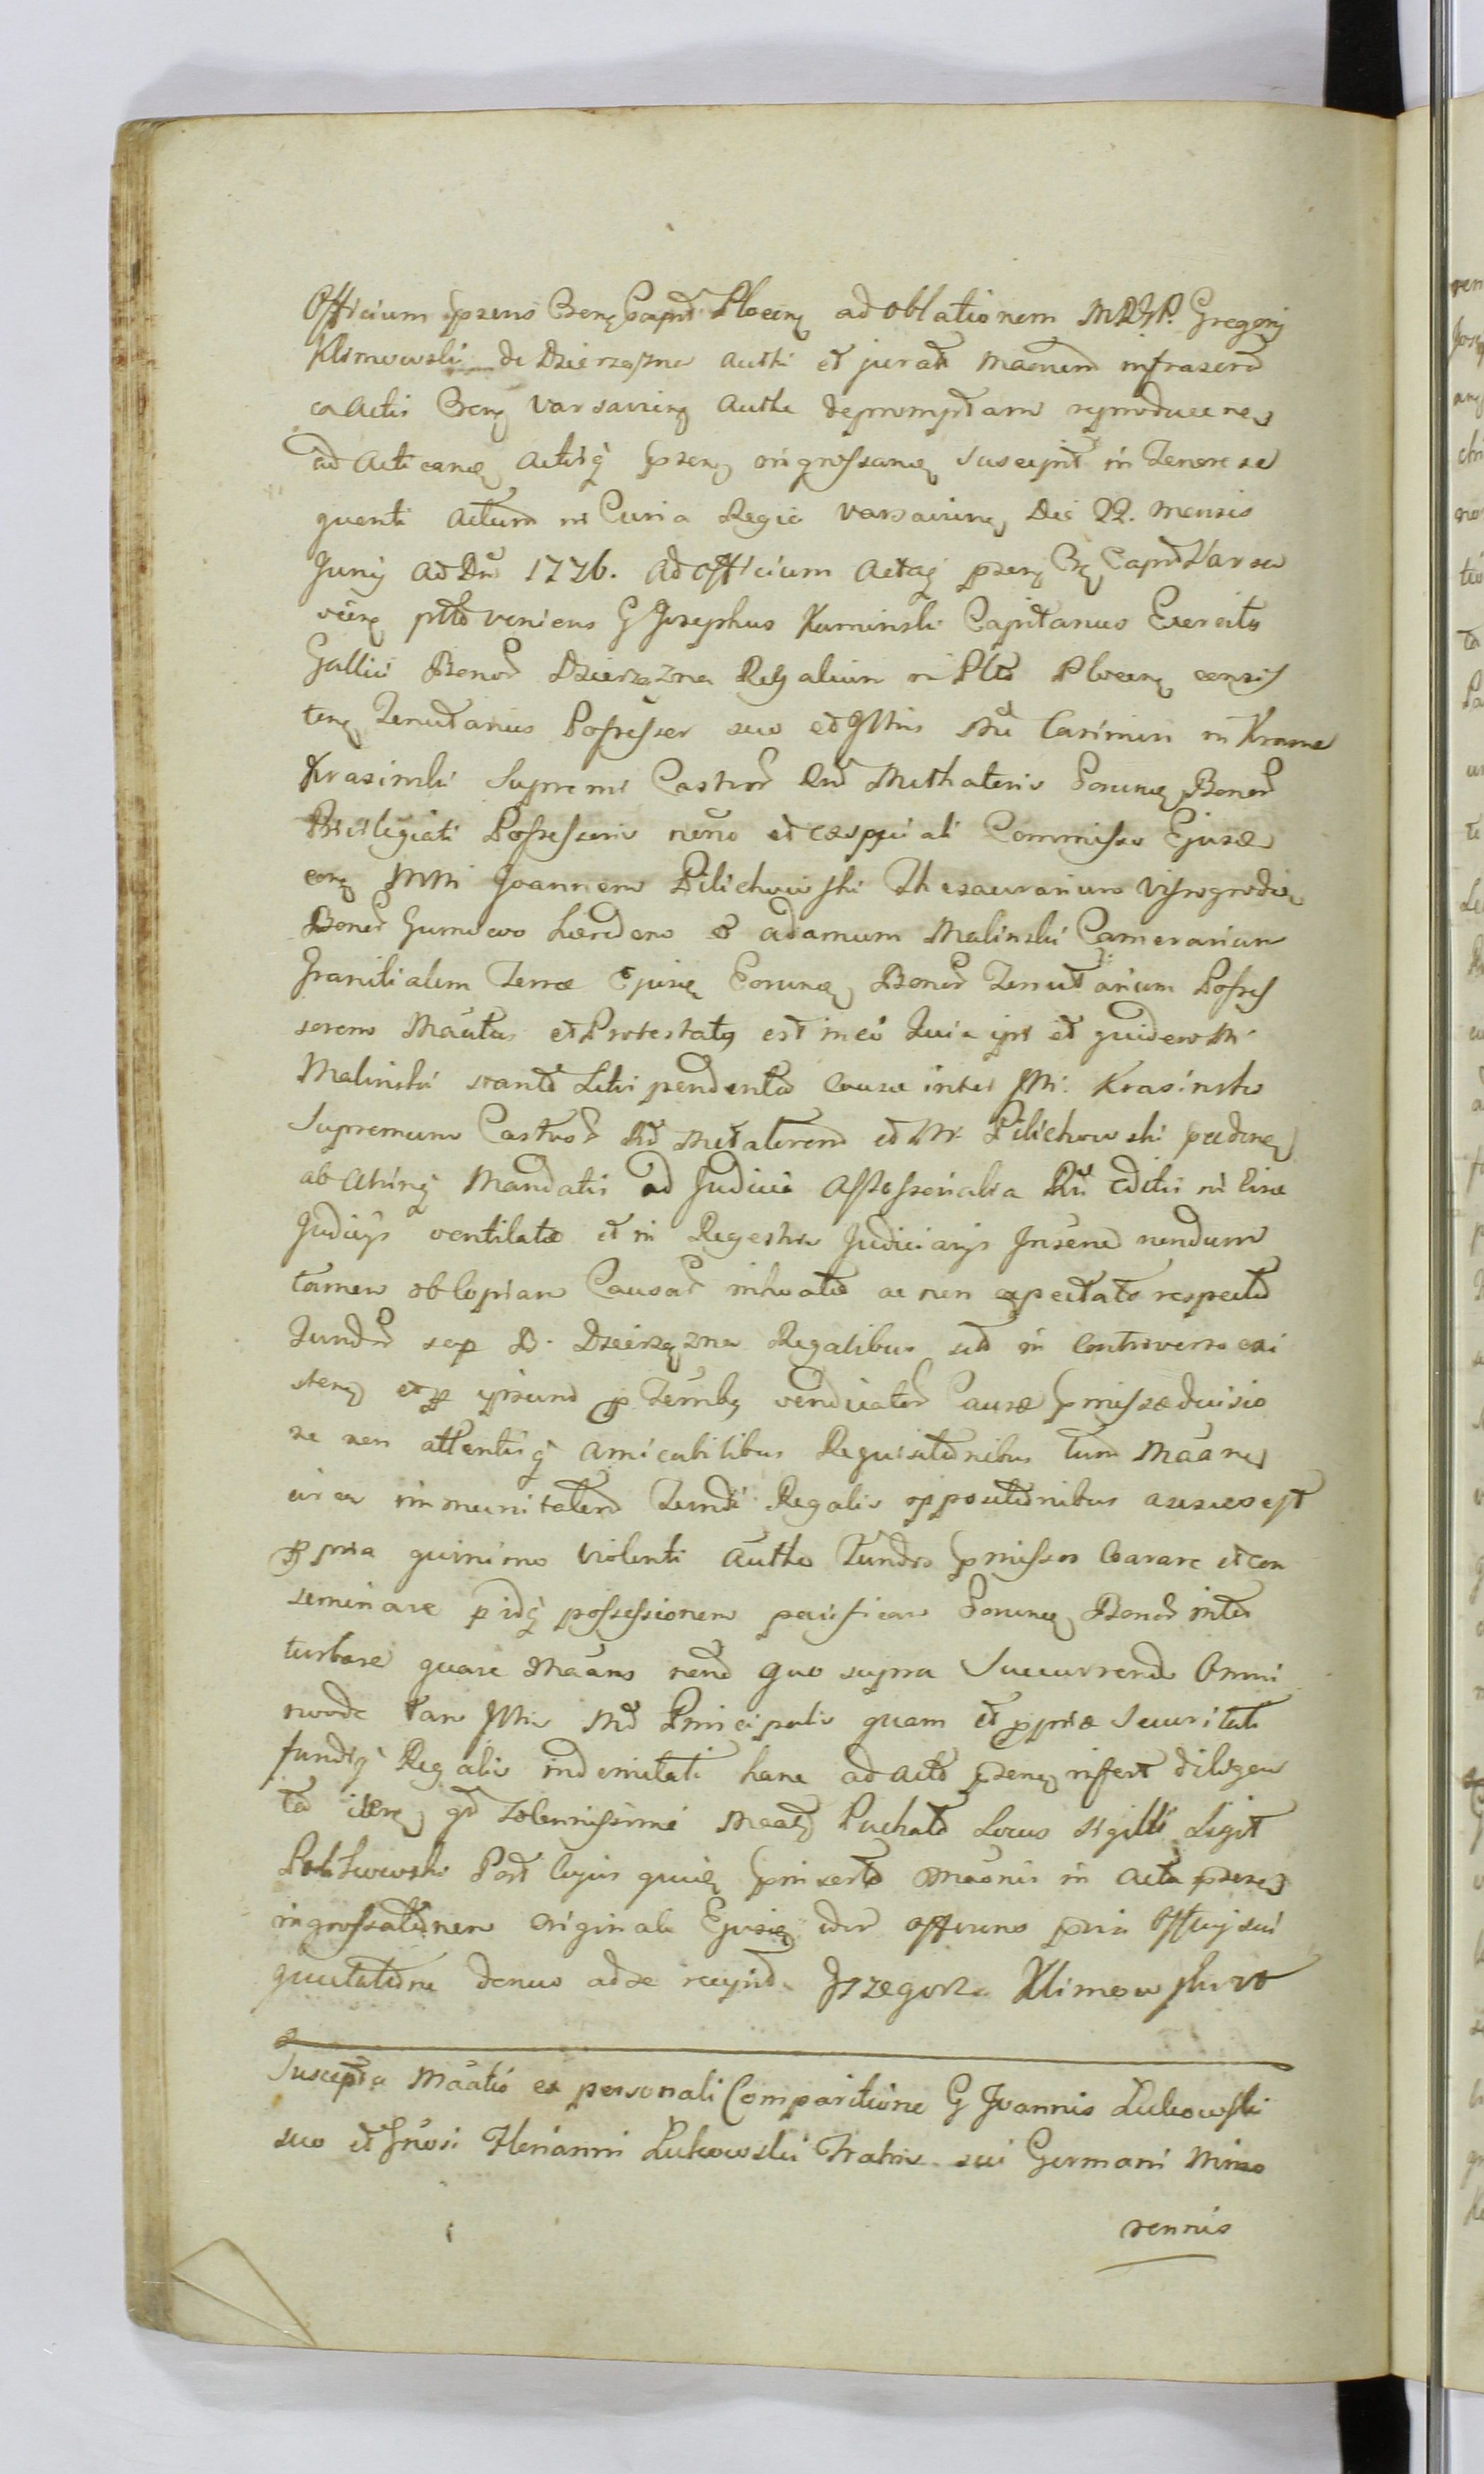 Officium prens Cren Capnt Plocen ad oblationem MDJP. Gregorij
Klimowski de Dzierzązna autti et jurati Maonem infrascrd
ex Actis Cren Varsavien autte depromptam reproducen
ad acticane Actisq pren ingrossane suscepit in Tenore se
quenti Actum in Curia Regia Varsavien Die 22. mensis
Junij Ad Dni 1776. Ad Officium Actaq pren Cr Capnt Varsa
vien pltr veniens G Josephus Kaminski Capitanus Exercitus
Gallici Bonor Dzierzązna Regalium in Pltu Plocen consis
ten Tenutarius Possessor suo et JMis Mci Casimiri in Krasne
Krasinski Supremi Castror Rni Methatoris Eorunde Bonor
Privilegiati Possessoris neno et ex speciali Commisso Ejusde
con MM Joannem Pilichowski Thesaurarium Vissogrodien
Bonor Gumowo Hæredem et Adamum Malinski Camerarium
Granitialem Terræ Ejusde Eorunde Bonor Tenutarium Posses
sorem Mautus et Protestatus est in eo Quia ipsi et quidem M
Malinski stante Litis pendentia Causæ inter JM. Krasinski
Supremum Castror Rni Metatorem et M. Pilichowski
ab utrinq Mandatis ad Judicia Assessorialia Rni editis in eisde
Judicijs ventilatæ et in Regestris Judiciarijs Insertæ nondum
tamen ob copiam Causar inchoatæ ac non expectata respectu
Fundor sep B. Dzierzązna Regalibus sub in Controverso exi
sten et p ipsum p Terminos vendicator Causæ pmissæ decisio
ne non attentisq amicabilibus Requisitionibus tum Maane
circa immunitatem Fundi Regalis oppositionibus ausus est
ppria quinimo violenti autte Fundos pmissos Coarare et con
seminare p idq possessionem pacificam Eorunde Bonor inter
turbare quare Maans neno quo supra Succurrendo Omni
mode tam JMis Mci Principalis quam et ppriæ Securitati
fundiq Regalis indemnitati hanc ad Acta pren infert diligen
tia iteren qd Solennissime Maat Puchala Locus Sigilli Legit
Post Cujus quide pmisertæ Maonis in Acta pren
ingrossationem originale Ejusde idem offerens pria Officij sui
quietatione denuo ad se recepit. Grzegorz Klimowski
Suscepta Maatio ex personali Comparitione G Joannis Łukowski
suo et Gnosi Floriani Łukowski Fratris sui Germani Mino
rennis